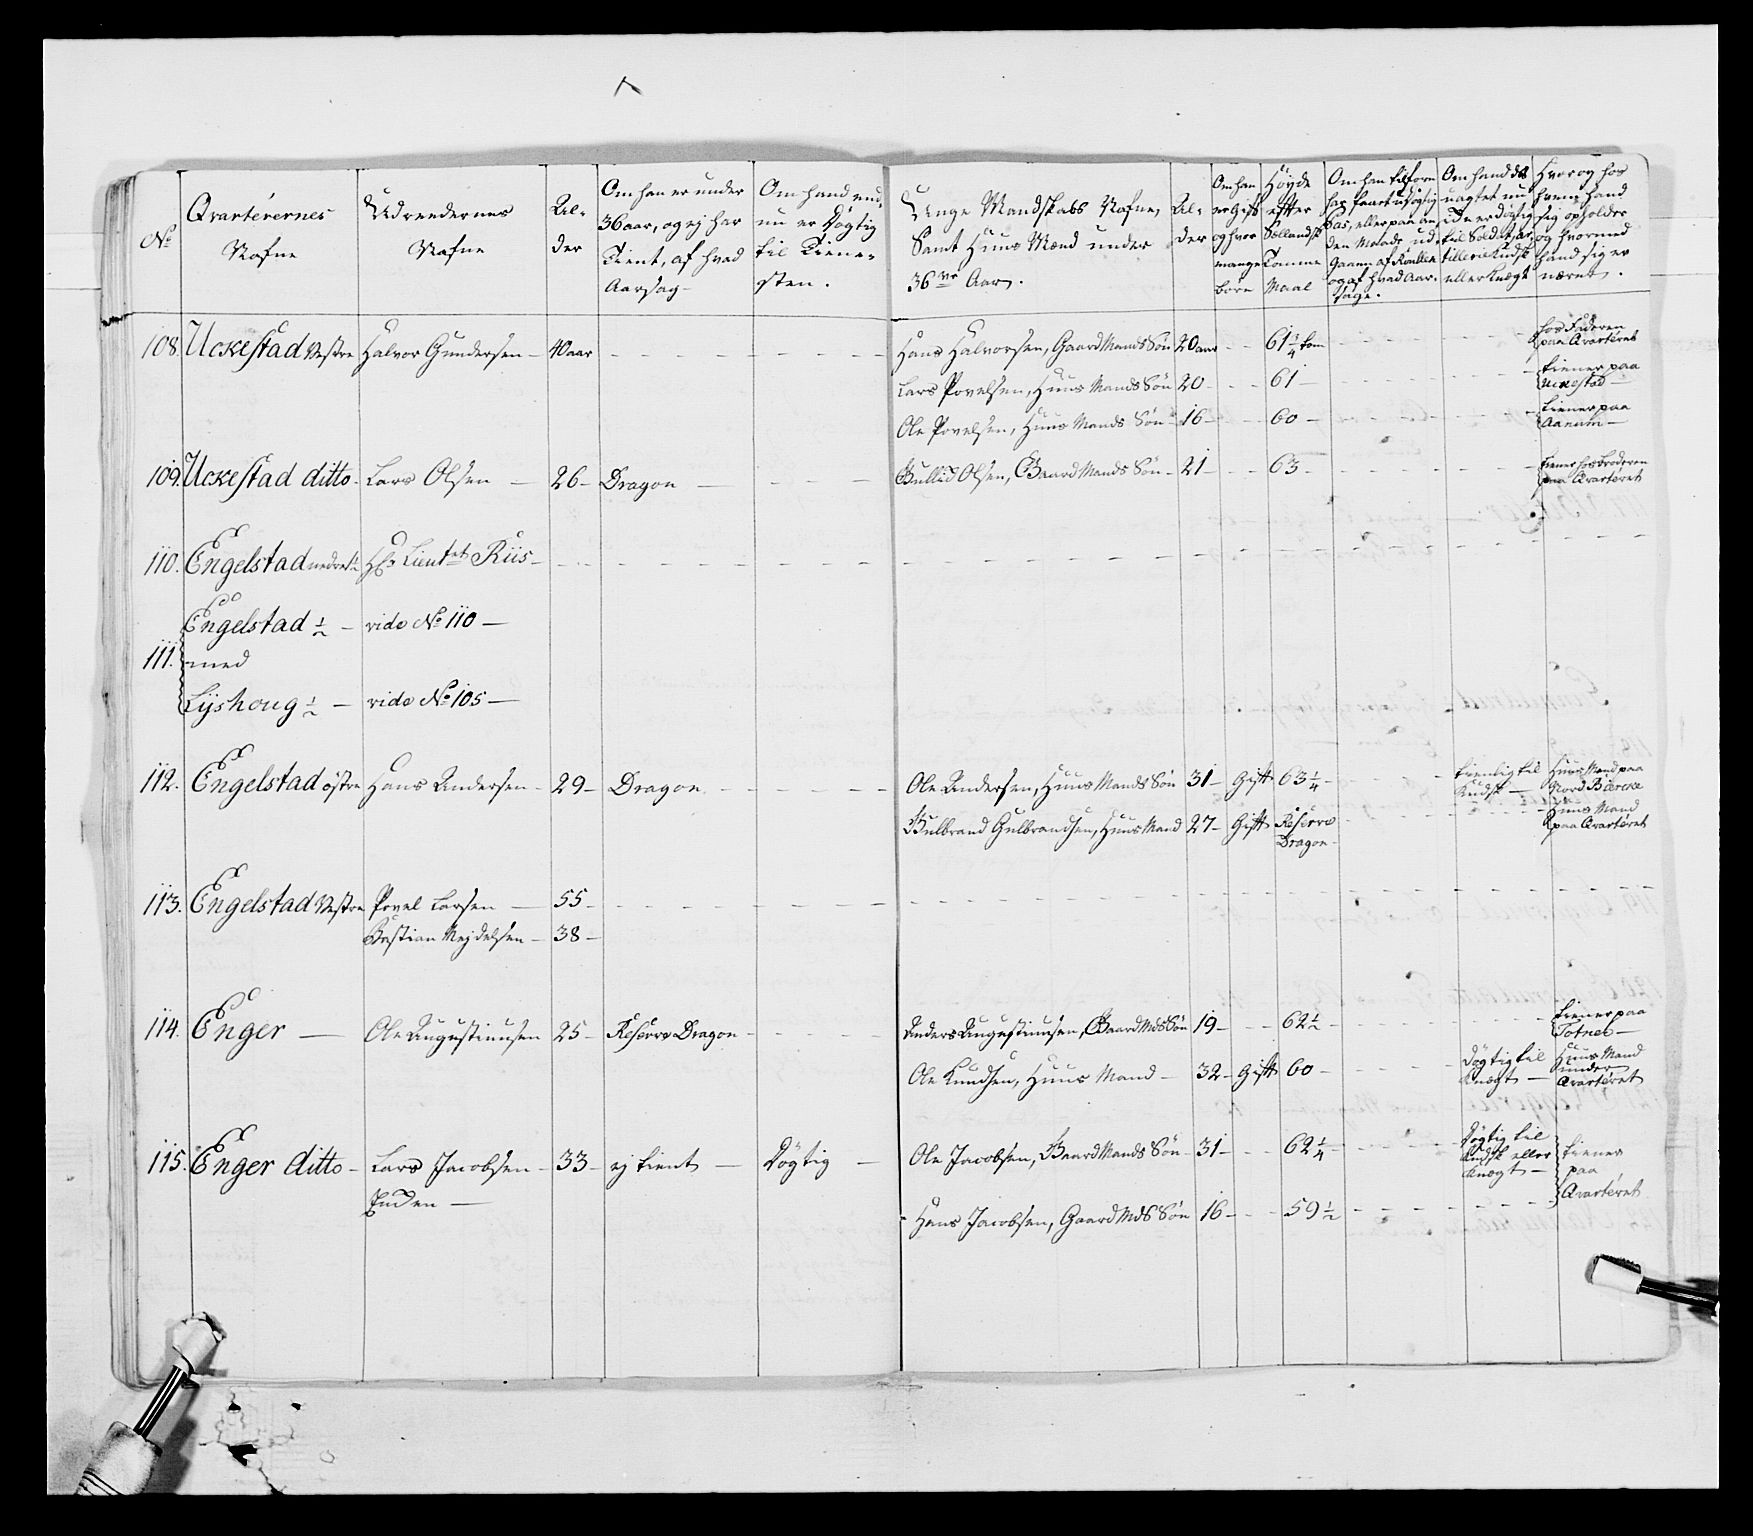 No
Qvarterernes
Nafne
Udreedernes
Nafne
Al-
der
Om han er under
36 aar, og ej har
Tient, af hvad
Aarsag
Om hand end
nu er Døgtig
til Tiene-
sten.
Unge Mandskabs Nafne,
Samt Huus Mænd under
36ve Aar.
Al-
der
Om han
er Gift
og hvor
mange
børn
Høyde
efter
Sællandsk
Tomme
Maal
Om han tilforn
har faaet udygtig
Pas, eller paa an
den Maade ud-
Gaaen af Rullen
og af hvad Aar-
sage.
Om hand des
uagtet nu
til Soldat, ar
tillerie Kudsk
eller Knegt
Hvor og hos
hvem hand
sig opholder
og hvormed
hand sig er
næret.
108. Uckestad Vestre Halvor Gundersen 40 aar Hans Halvorsen, Gaard Mands Søn 20 aar 61 1/4 tom hos Faderen
paa Qvarteret
Lars Povelsen, Huus Mands Søn 20 61 tiener paa
Uckestad
Ole Povelsen, Huus Mands Søn 16 60 tiener paa
Aanum
109. Uckestad ditto Lars Olsen 26 Dragon Olsen, Gaard Mands Søn 21 63 tiener hos broderen
paa Qvarteret
110. Engelstad nedre 1/2 Hr Lieutnt Riis
Engelstad 1/2 vide No 110
111. med
Lijshoug 1/2 vide No 105
112. Engelstad østre Hans Andersen 29 Dragon Ole Andersen, Huus Mands Søn 31 Gift 63 1/4 tienlig til
Kudsk Huus Mand paa
Nord Biercke
Gulbrand Gulbrandsen, Huus Mand 27 Gift Reserve
Dragon Huus Mand
paa Qvarteret
113. Engelstad Vestre Povel Larsen 55
Bastian Mejdelsen 38
114. Enger Ole Augustinusen 25 Reserve Dragon Anders Augustinusen, Gaard Mds Søn 19 62 1/2 tiener paa
Totnes
Ole Knudsen, Huus Mand 32 Gift 60 Døgtig til
Knegt Huus Mand
under
Qvarteret
115. Enger ditto Lars Jacobsen 33 ej tient Døgtig Ole Jacobsen, Gaard Mands Søn 31 62 1/4 Døgtig til
Kudsk eller
Knegt tiener
paa
Qvarteret
Enden Hans Jacobsen, Gaard Mds Søn 16 59 1/2